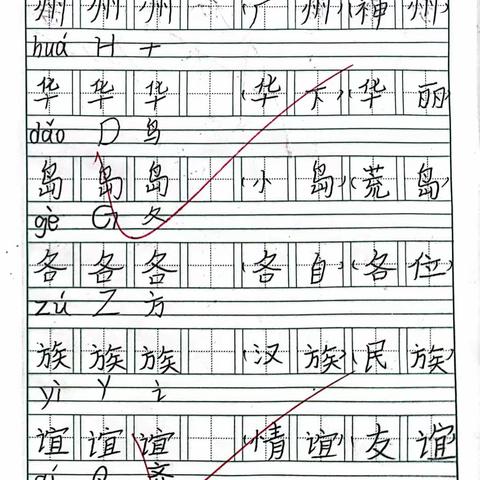 州 州 州 (广 州) (神 州)
huá H 十
华 华 华 (华 下) (华 丽)
dǎo D 鸟
岛 岛 岛 (小 岛) (荒 岛)
gè G 夂
各 各 各 (各 自) (各 位)
zú Z 方
族 族 族 (汉 族) (民 族)
yì Y 讠
谊 谊 谊 (情 谊) (友 谊)